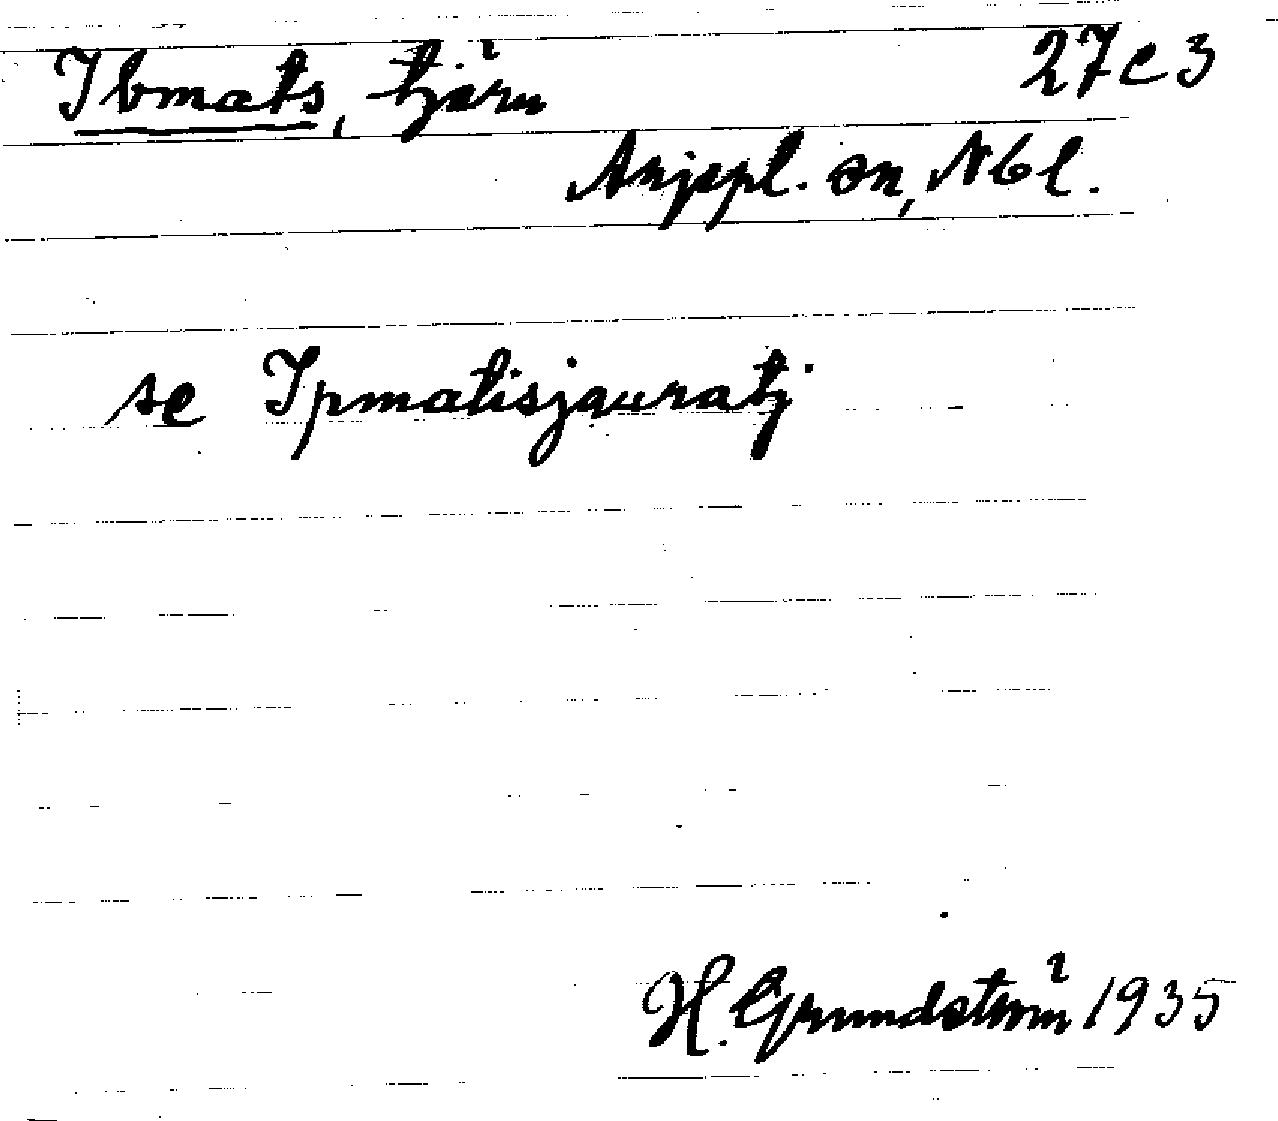 Ibmats, tjärn 27 c 3
Arjepl. sn, Nbl.
se Ipmatisjauratj
H. Grundström 1935